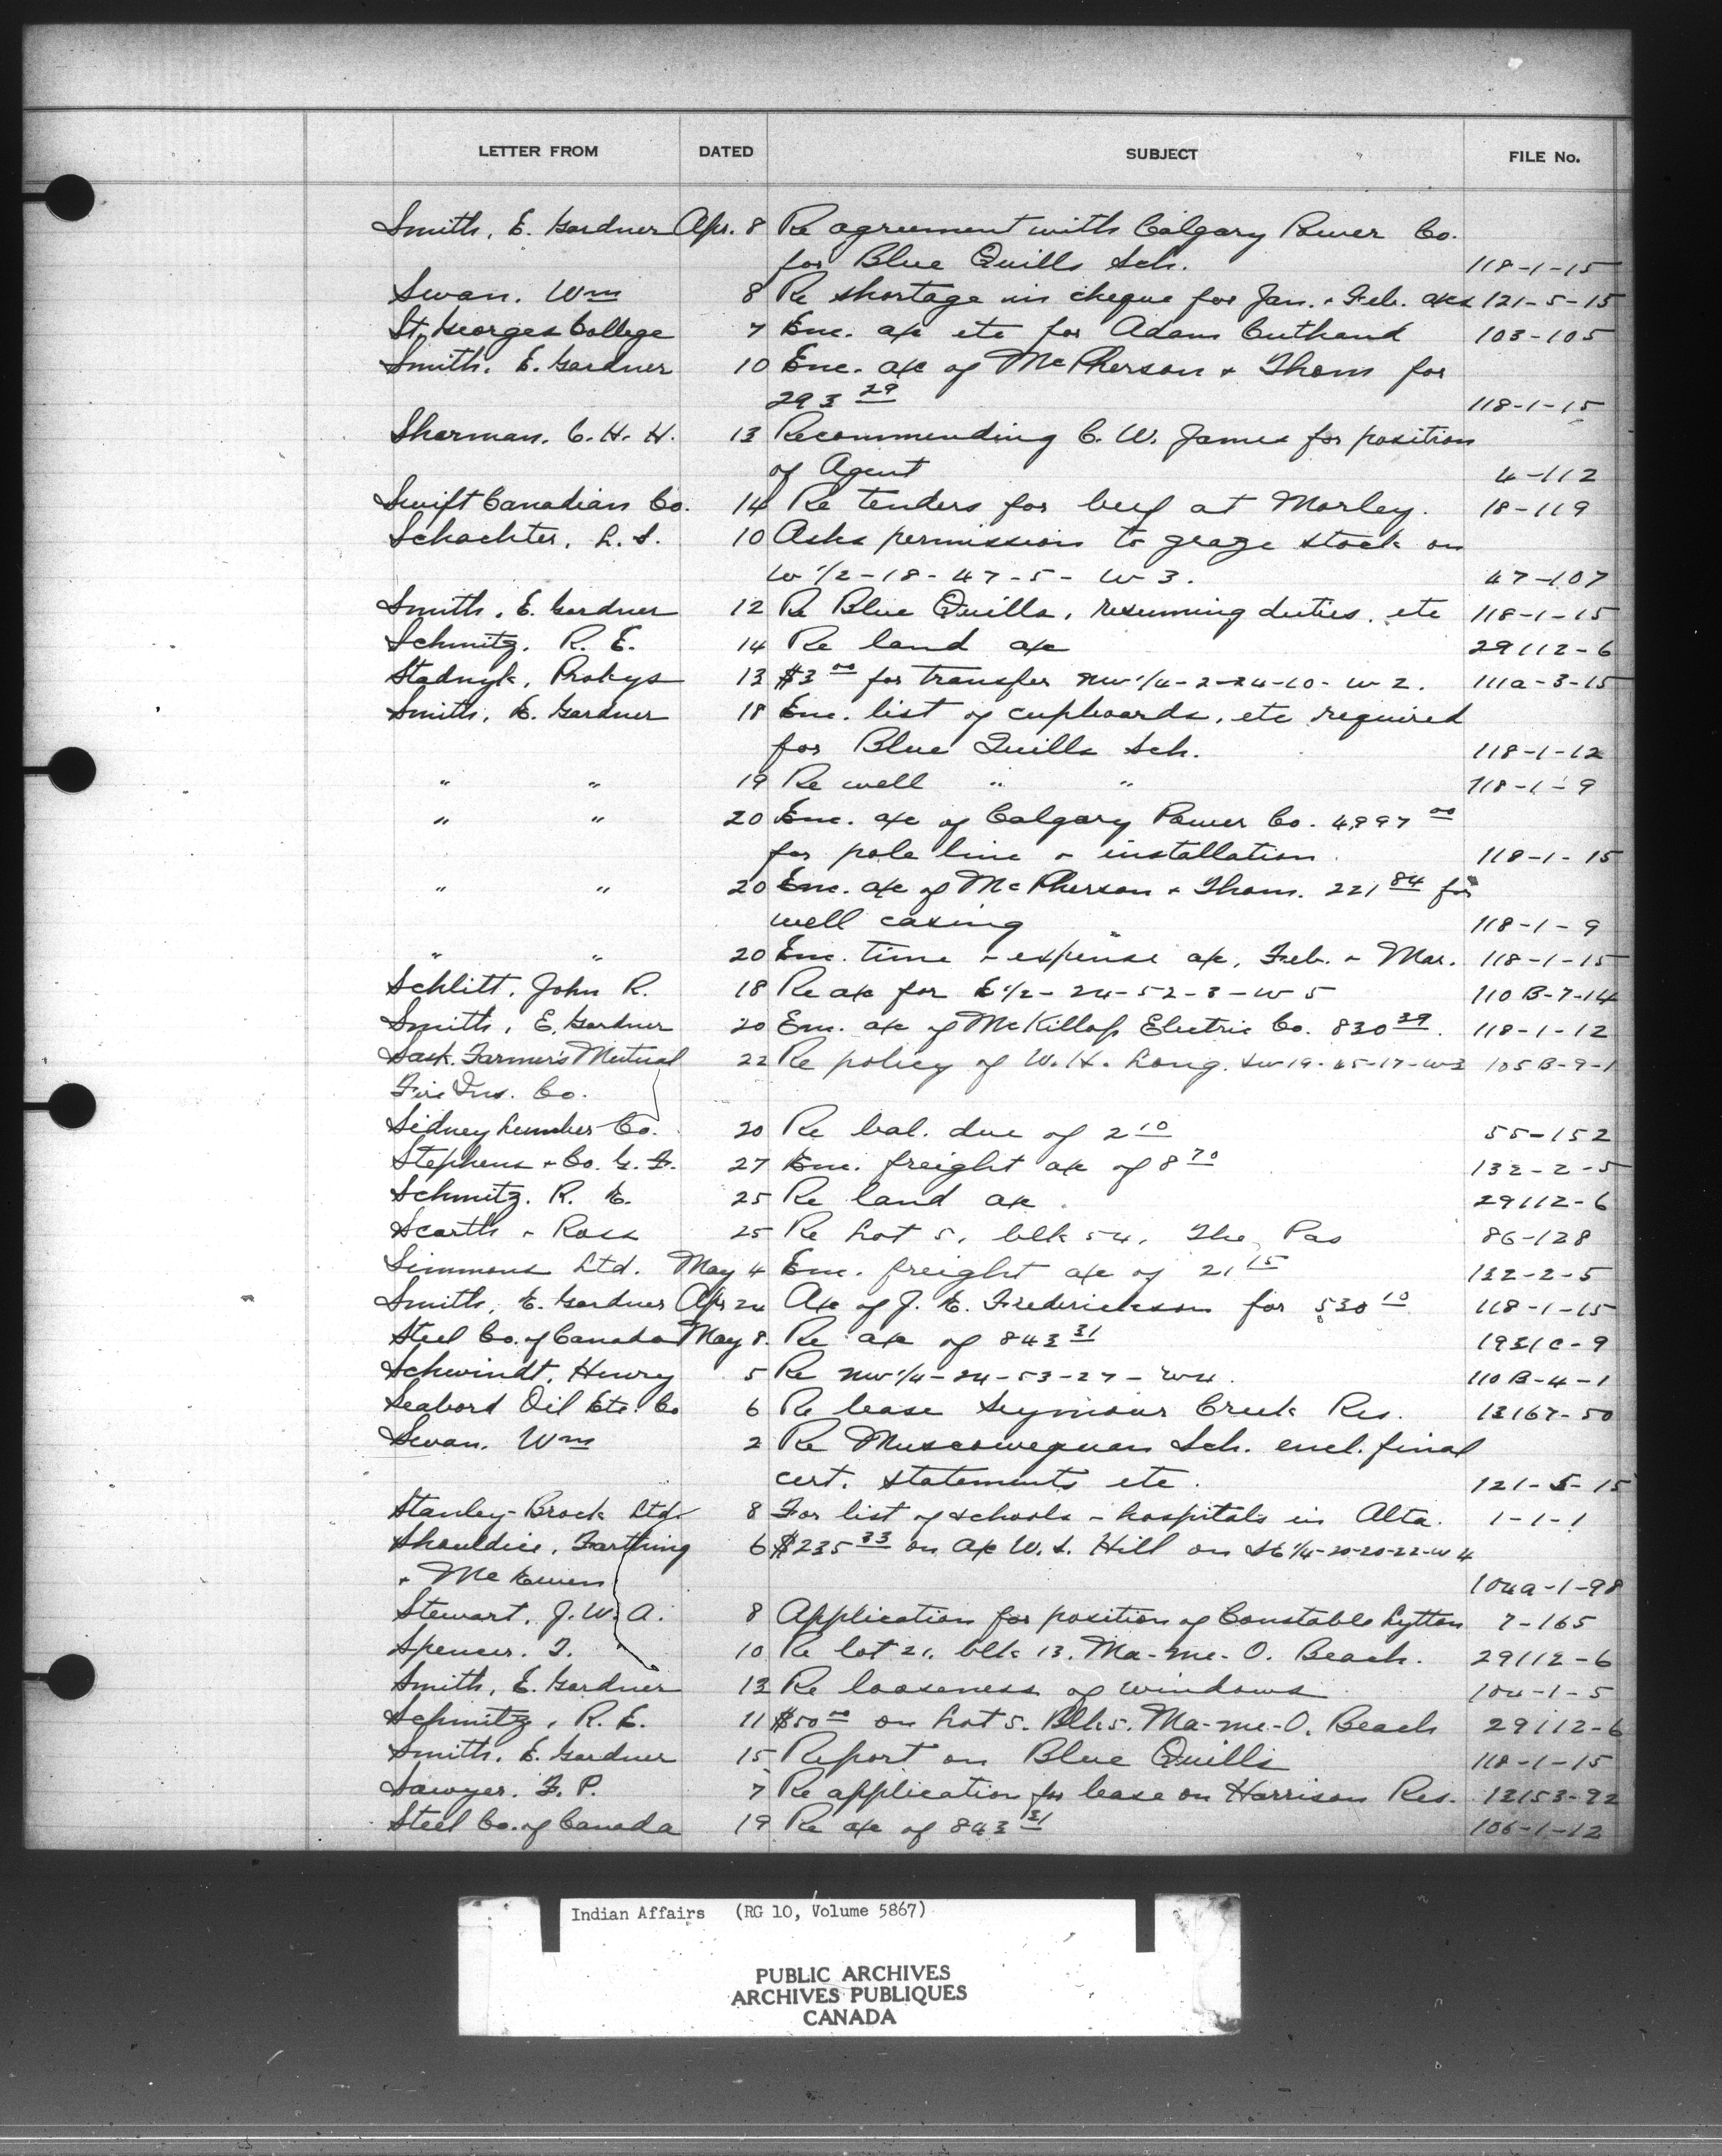 LETTER FROM DATED SUBJECT FILE No.
Smith, E. Gardner Apr. 8 Re agreement with Calgary Power Co.
for Blue Quills Sch. 118-1-15
Swan, Wm 8 Re shortage in cheque for Jan. + Feb. a/cs 121-5-15
St. Georges College 7 Enc. a/c etc for Adam Cuthand 103-105
Smith, E. Gardner 10 Enc. a/c of McPherson + Thom for
293 29 118-1-15
Sherman, C. H. H. 13 Recommending C. W. James for position
of Agent 4-112
Swift Canadian Co. 14 Re tenders for beef at Morley. 18-119
Schachter, L. S. 10 Asks permission to graze stock on
W 1/2-18-47-5-W 3. 47-107
Smith, E. Gardner 12 Re Blue Quills, resuming duties, etc 118-1-15
Schmitz, R. E. 14 Re land a/c 29112-6
Stadnyk, Prokys 13 $3 00 for transfer NW 1/4-2-24-10-W 2. 111a-3-15
Smith, E. Gardner 18 Enc. list of cupboards, etc required
for Blue Quills Sch. 118-1-12
" " 19 Re well " " 118-1-9
" " 20 Enc. a/c of Calgary Power Co. 4,997 00
for pole line + installation. 118-1-15
" " 20 Enc. a/c of McPherson + Thom. 221 84 for
well casing 118-1-9
" " 20 Enc. time + expense a/c, Feb. + Mar. 118-1-15
Schlitt, John R. 18 Re a/c for E 1/2-24-52-3-W 5 110 B-7-14
Smith, E. Gardner 20 Enc. a/c of McKillop Electric Co. 830 39. 118-1-12
Sask. Farmer's Mutual 22 Re policy of W. H. Long. SW 19-45-17-W3 105 B-9-1
Fire Ins. Co.
Sidney Lumber Co. 20 Re bal. due of 2 10 55-152
Stephens + Co. G. F. 27 Enc. freight a/c of 8 70 132-2-5
Schmitz, R. E. 25 Re land a/c. 29112-6
Scarth + Ross 25 Re Lot 5, blk 54, The Pas 86-128
Simmons Ltd. May 4 Enc. freight a/c of 21 15 132-2-5
Smith, E. Gardner Apr 24 A/c of J. E. Frederickson for 530 10 118-1-15
Steel Co. of Canada May 8. Re a/c of 843 31 1931C-9
Schwindt, Henry 5 Re NW 1/4-24-53-27-W4. 110 B-4-1
Seabord Oil Etc. Co 6 Re lease Seymour Creek Res. 13167-50
Swan, Wm 2 Re Muscowequan Sch. encl. final
cert. statements etc. 121-5-15
Stanley-Brock Ltd. 8 For list of schools + hospitals in Alta. 1-1-1
Shouldice, Farthing 6 $235 33 on a/c W. S. Hill on SE 1/4-20-20-22-W 4
+ McEwen 104a-1-98
Stewart, J. W. A. 8 Application for position of Constable Lytton 7-165
Spencer, T. 10 Re lot 21, blk 13. Ma-me-O. Beach. 29112-6
Smith, E. Gardner 13 Re looseness of windows 104-1-5
Schmitz, R. E. 11 $50 00 on Lot 5. Blk 5. Ma-me-O. Beach 29112-6
Smith, E. Gardner 15 Report on Blue Quills 118-1-15
Sawyer, F. P. 7 Re application for lease on Harrison Res. 12153-92
Steel Co. of Canada 19 Re a/c of 843 31 106-1-12
Indian Affairs (RG 10, Volume 5867)
PUBLIC ARCHIVES
ARCHIVES PUBLIQUES
CANADA